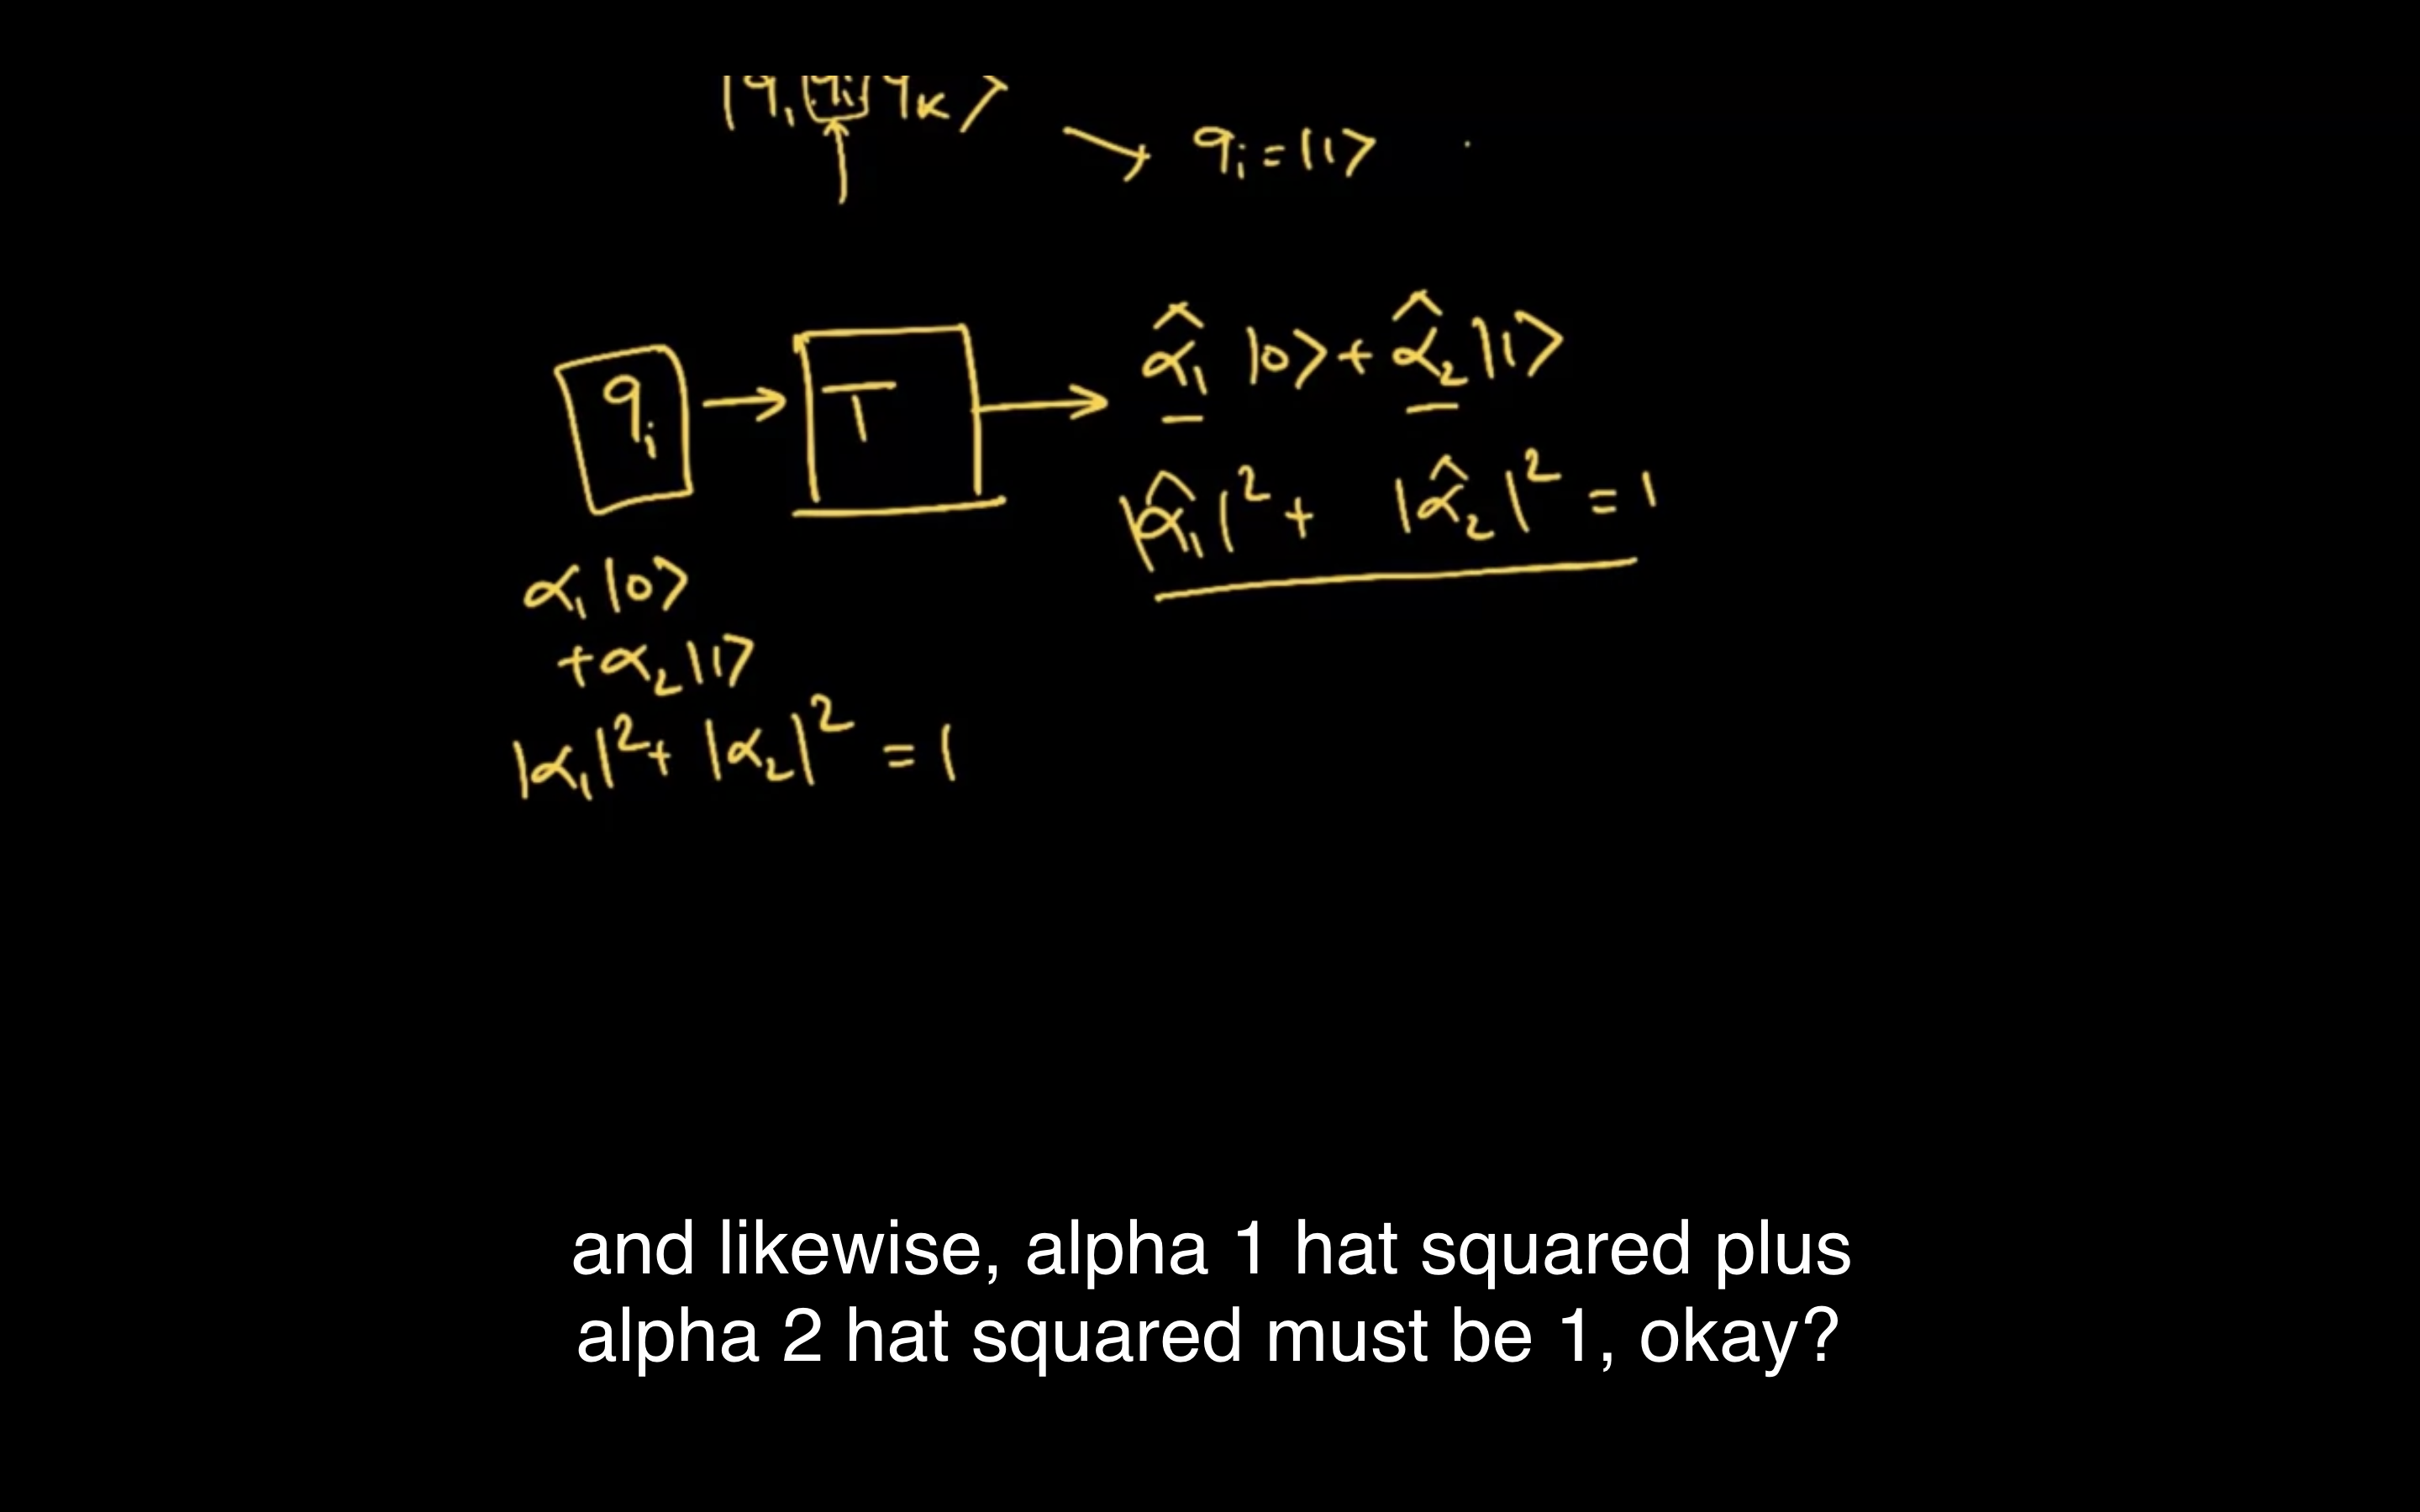 |q₁ qᵢ qₖ⟩
→ qᵢ = |1⟩
qᵢ → T → α̂₁ |0⟩ + α̂₂ |1⟩
|α̂₁|² + |α̂₂|² = 1
α₁ |0⟩
+ α₂ |1⟩
|α₁|² + |α₂|² = 1
and likewise, alpha 1 hat squared plus
alpha 2 hat squared must be 1, okay?